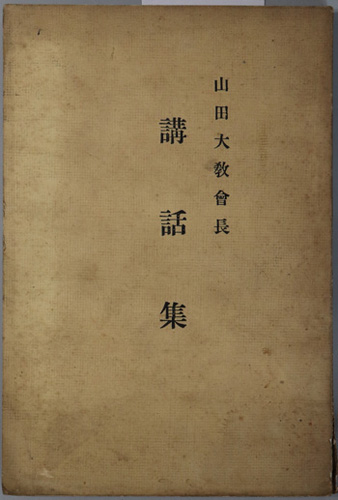 山田大教會長
講話集